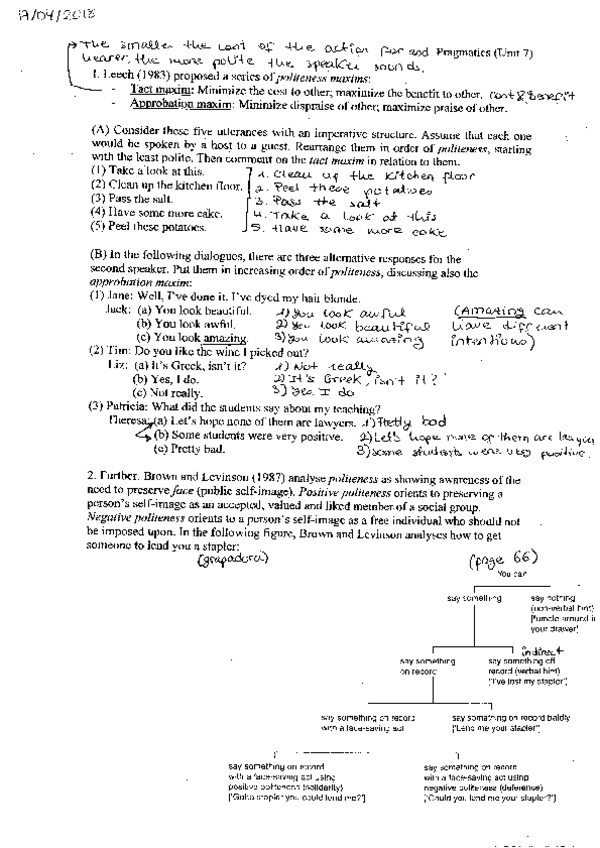 17/04/2018
The smaller the cost of the action for and Pragmatics (Unit 7)
hearer, the more polite the speaker sounds.
1. Leech (1983) proposed a series of politeness maxims:
- Tact maxim: Minimize the cost to other; maximize the benefit to other. cost & benefit
- Approbation maxim: Minimize dispraise of other; maximize praise of other.
(A) Consider these five utterances with an imperative structure. Assume that each one
would be spoken by a host to a guest. Rearrange them in order of politeness, starting
with the least polite. Then comment on the tact maxim in relation to them.
(1) Take a look at this. 1. Clean up the kitchen floor
(2) Clean up the kitchen floor. 2. Peel these potatoes
(3) Pass the salt. 3. Pass the salt
(4) Have some more cake. 4. Take a look at this
(5) Peel these potatoes. 5. Have some more cake
(B) In the following dialogues, there are three alternative responses for the
second speaker. Put them in increasing order of politeness, discussing also the
approbation maxim:
(1) Jane: Well, I've done it. I've dyed my hair blonde.
Jack: (a) You look beautiful. 1) You look awful (Amazing can
(b) You look awful. 2) You look beautiful have different
(c) You look amazing. 3) You look amazing intentions)
(2) Tim: Do you like the wine I picked out?
Liz: (a) It's Greek, isn't it? 1) Not really
(b) Yes, I do. 2) It's Greek, isn't it?
(c) Not really. 3) Yes I do
(3) Patricia: What did the students say about my teaching?
Theresa: (a) Let's hope none of them are lawyers. 1) Pretty bad
(b) Some students were very positive. 2) Let's hope none of them are lawyers
(c) Pretty bad. 3) Some students were very positive.
2. Further, Brown and Levinson (1987) analyse politeness as showing awareness of the
need to preserve face (public self-image). Positive politeness orients to preserving a
person's self-image as an accepted, valued and liked member of a social group.
Negative politeness orients to a person's self-image as a free individual who should not
be imposed upon. In the following figure, Brown and Levinson analyses how to get
someone to lend you a stapler:
(grapadora) (page 66)
You can
say something say nothing
(non-verbal hint)
['rumole around in
your drawer]
indirect
say something say something off
on record record (verbal hint)
['I've lost my stapler']
say something on record say something on record baldly
with a face-saving act ['Lend me your stapler']
say something on record say something on record
with a face-saving act using with a face-saving act using
positive politeness (solidarity) negative politeness (deference)
['Gotta stapler you could lend me?'] ['Could you lend me your stapler?']